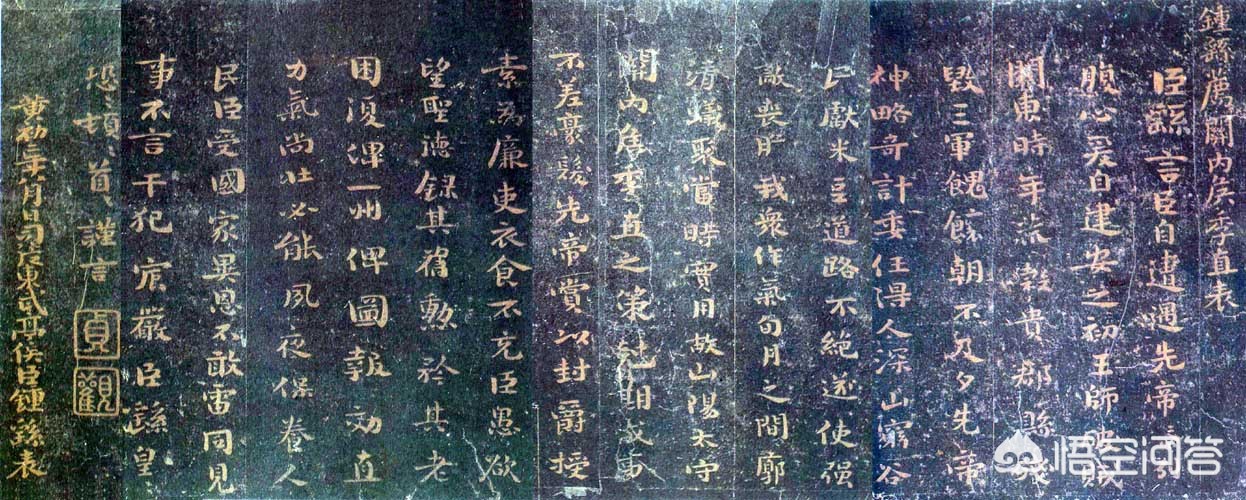 鍾繇薦關內侯季直表
臣繇言臣自遭遇先帝
腹心爰自建安之初王師破賊
關東時年荒穀貴郡縣殘
毀三軍餽饟朝不及夕先帝
神略奇計委任得人深山窮谷
民獻米豆道路不絕遂使强
敵喪膽我衆作氣旬月之間廓
清蟻聚當時實用故山陽太守
關內侯季直之策剋期成事
不差豪髮先帝賞以封爵授
素為廉吏衣食不充臣愚欲
望聖德錄其舊勳矜其老
困復俾一州俾圖報効直
力氣尚壯必能夙夜保養人
民臣受國家異恩不敢雷同見
事不言干犯宸嚴臣繇皇
恐〻頓〻首〻謹言
貞觀
黃初二年八月日司徒東武亭侯臣鍾繇表
悟空问答